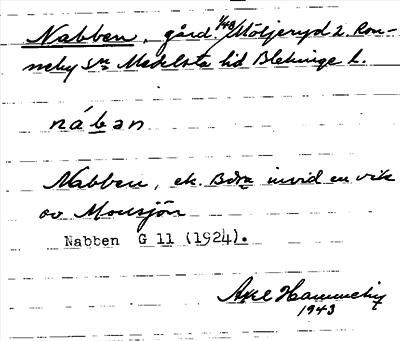 Nabben, gård 1/48 Möljeryd 2. Ron-
neby sn Medelsta hd Blekinge l.
nában
Nabben, ek. Bdn invid en vik
av Monsjön
Nabben G 11 (1924).
Axel Hammebÿ
1943